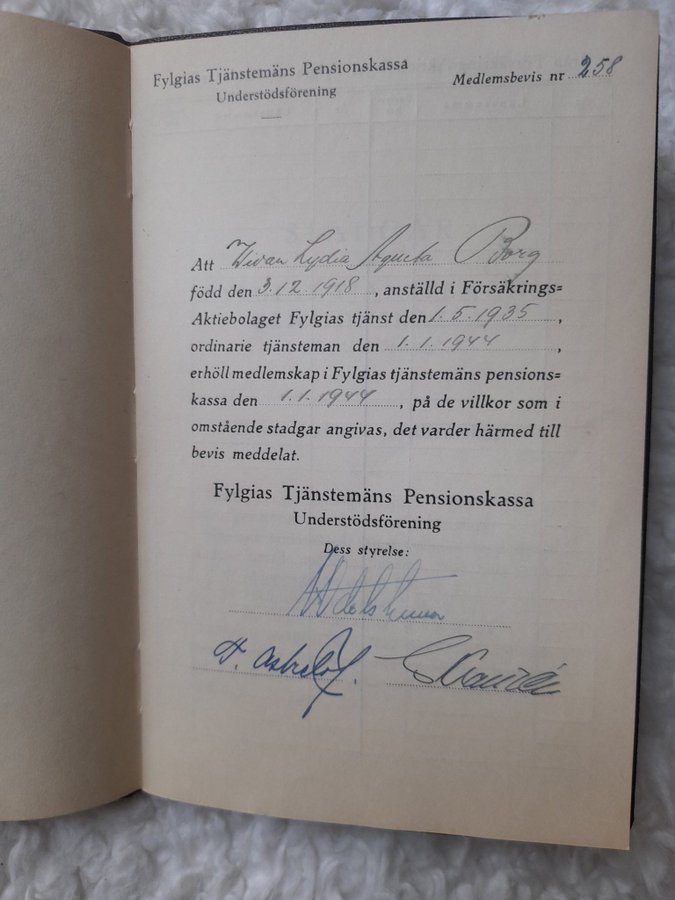 Fylgias Tjänstemäns Pensionskassa
Understödsförening
Medlemsbevis nr 258
Att Vivan Lydia Agneta Borg
född den 3.12.1918, anställd i Försäkrings=
Aktiebolaget Fylgias tjänst den 1.5.1935,
ordinarie tjänsteman den 1.1.1944,
erhöll medlemskap i Fylgias tjänstemäns pensions=
kassa den 1.1.1944, på de villkor som i
omstående stadgar angivas, det varder härmed till
bevis meddelat.
Fylgias Tjänstemäns Pensionskassa
Understödsförening
Dess styrelse: